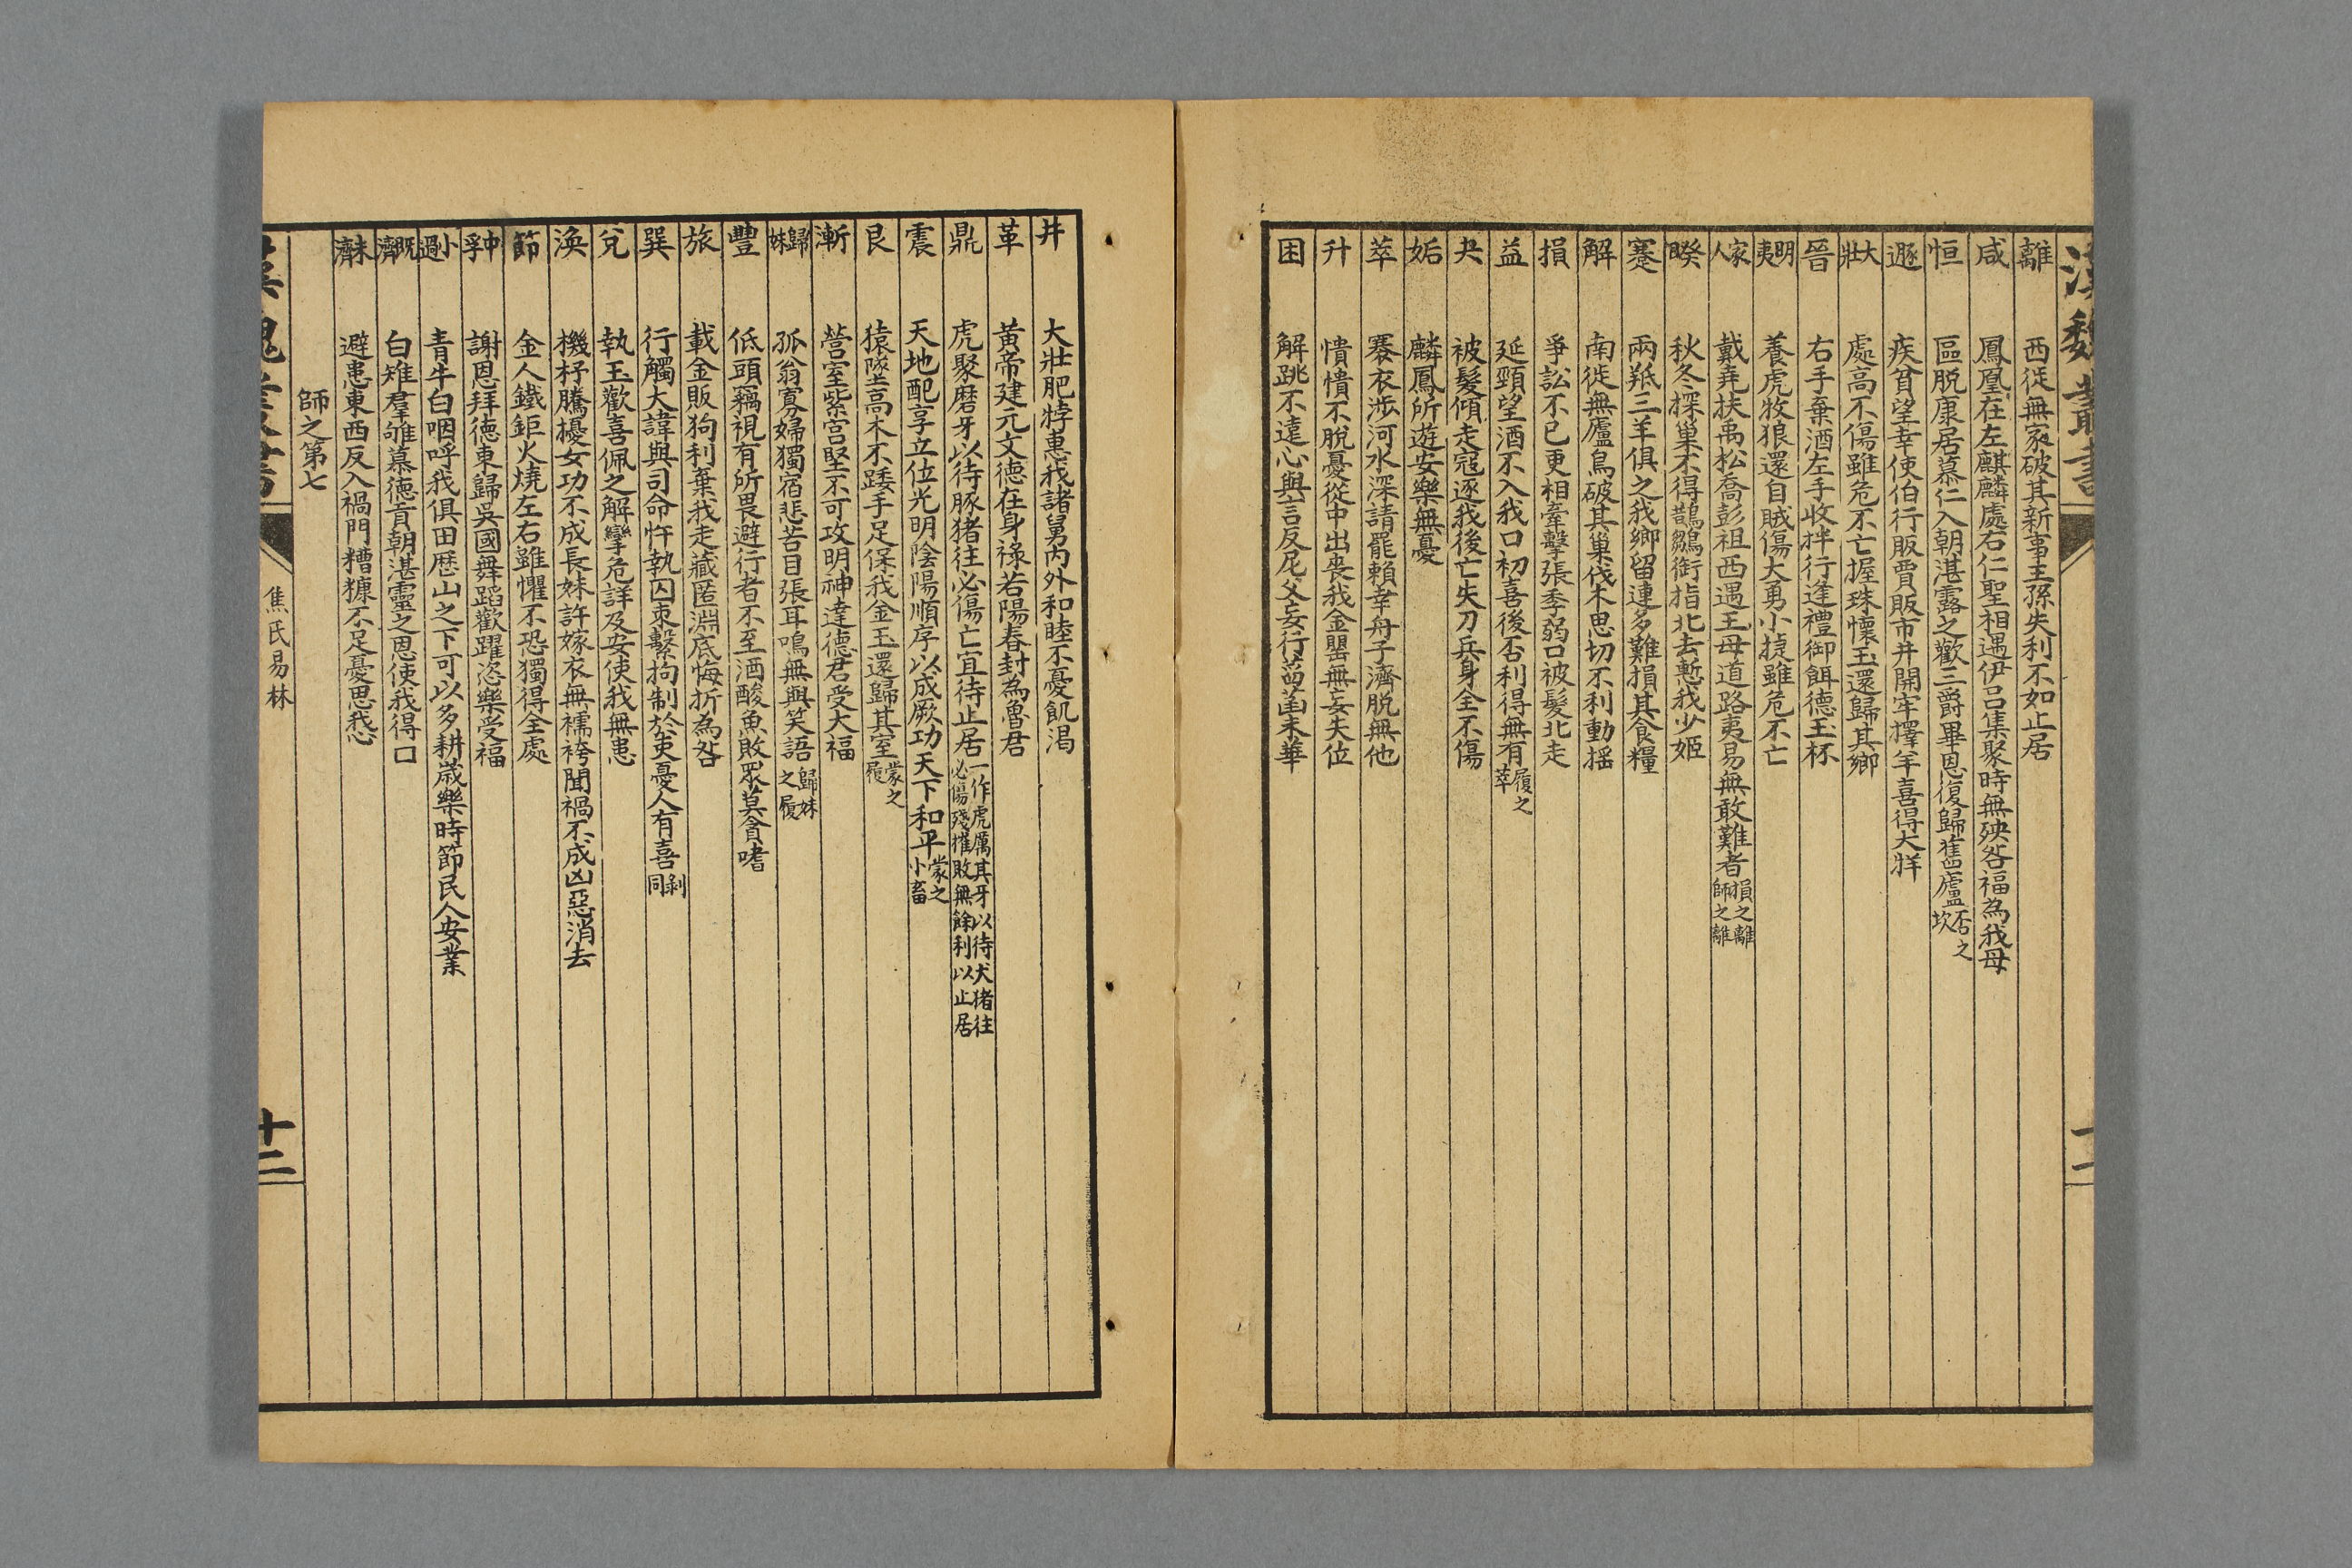 漢魏叢書
十一
離 西徙無家破其新事王孫失利不如止居
咸 鳳凰在左麒麟處右仁聖相遇伊呂集聚時無殃咎福為我母
恒 區脫康居慕仁入朝湛露之歡三爵畢恩復歸舊廬否之坎
遯 疾貧望幸使伯行販賈販市井開牢擇羊喜得大牂
大壯 處高不傷雖危不亡握珠懷玉還歸其鄉
晉 右手棄酒左手收柈行逢禮御餌德玉杯
明夷 養虎牧狼還自賊傷大勇小捷雖危不亡
家人 戴堯扶禹松喬彭祖西遇王母道路夷易無敢難者損之離師之離
睽 秋冬探巢不得鵲鶵銜指北去慙我少姬
蹇 兩羝三羊俱之我鄉留連多難損其食糧
解 南徙無廬鳥破其巢伐木思切不利動摇
損 爭訟不已更相牽擊張季弱口被髮北走
益 延頸望酒不入我口初喜後否利得無有履之萃
夬 被髮傾走寇逐我後亡失刀兵身全不傷
姤 麟鳳所遊安樂無憂
萃 褰衣涉河水深請罷賴幸舟子濟脱無他
升 憒憒不脱憂從中出喪我金罌無妄失位
困 解跳不遠心與言反尨父妄行菑菑未華
井 大壯肥牸惠我諸舅內外和睦不憂飢渴
革 黄帝建元文德在身祿若陽春封為魯君
鼎 虎聚磨牙以待豚猪往必傷亡宜待止居一作虎厲其牙以待犬猪往必傷殘摧敗無餘利以止居
震 天地配享立位光明陰陽順序以成厥功天下和平蒙之小畜
艮 猿墜高木不踒手足保我金玉還歸其室蒙之履
漸 營室紫宮堅不可攻明神達德君受大福
歸妹 孤翁寡婦獨宿悲苦目張耳鳴無與笑語歸妹之履
豐 低頭竊視有所畏避行者不至酒酸魚敗眾莫貪嗜
旅 載金販狗利棄我走藏匿淵底悔折為咎
巽 行觸大諱與司命忤執囚束繫拘制於吏憂人有喜剝同
兌 執玉歡喜佩之解攣危詳及安使我無患
渙 機杼騰擾女功不成長妹許嫁衣無襦袴聞禍不成凶惡消去
節 金人鐵鉅火燒左右雖懼不恐獨得全處
中孚 謝恩拜德東歸吳國舞蹈歡躍恣樂受福
小過 青牛白咽呼我俱田歷山之下可以多耕歲樂時節民人安業
既濟 白雉羣雊慕德貢朝湛靈之恩使我得口
未濟 避患東西反入禍門糟糠不足憂思愁
師之第七
漢魏叢書
焦氏易林
十二